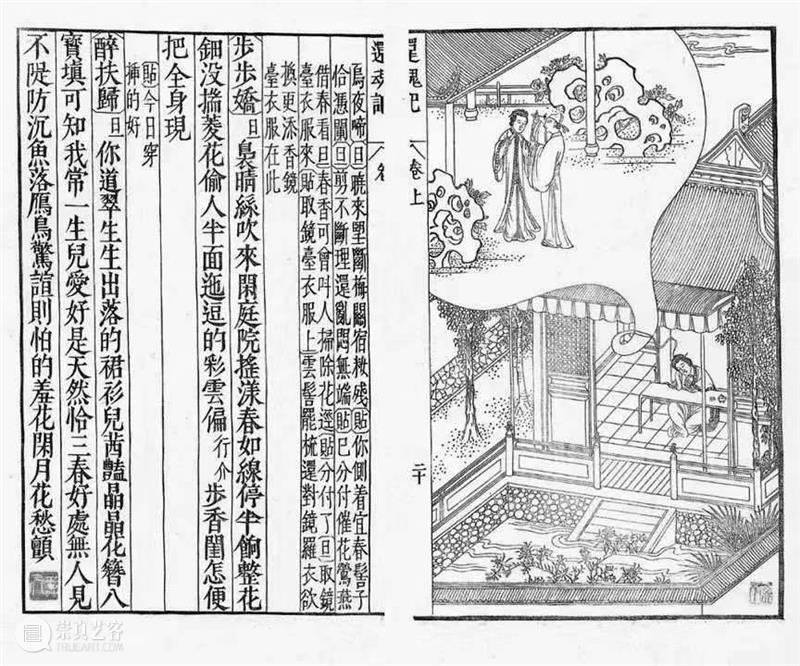 還魂記
卷上
二十
還魂記
卷
烏夜啼旦曉來望斷梅關宿粧殘貼你側着宜春髻子
恰憑闌旦剪不斷理還亂悶無端貼已分付催花鶯燕
借春看旦春香可曾叫人掃除花逕貼分付了旦取鏡
臺衣服來貼取鏡臺衣服上雲髻罷梳還對鏡羅衣欲
換更添香鏡
臺衣服在此
步步嬌旦裊晴絲吹來閑庭院搖漾春如線停半餉整花
鈿没揣菱花偷人半面迤逗的彩雲偏行介步香閨怎便
把全身現
貼今日穿
插的好
醉扶歸旦你道翠生生出落的裙衫兒茜豔晶晶花簪八
寶填可知我常一生兒愛好是天然恰三春好處無人見
不隄防沉魚落鴈鳥驚諠則怕的羞花閉月花愁顫
崇真艺客
TRUEART.COM